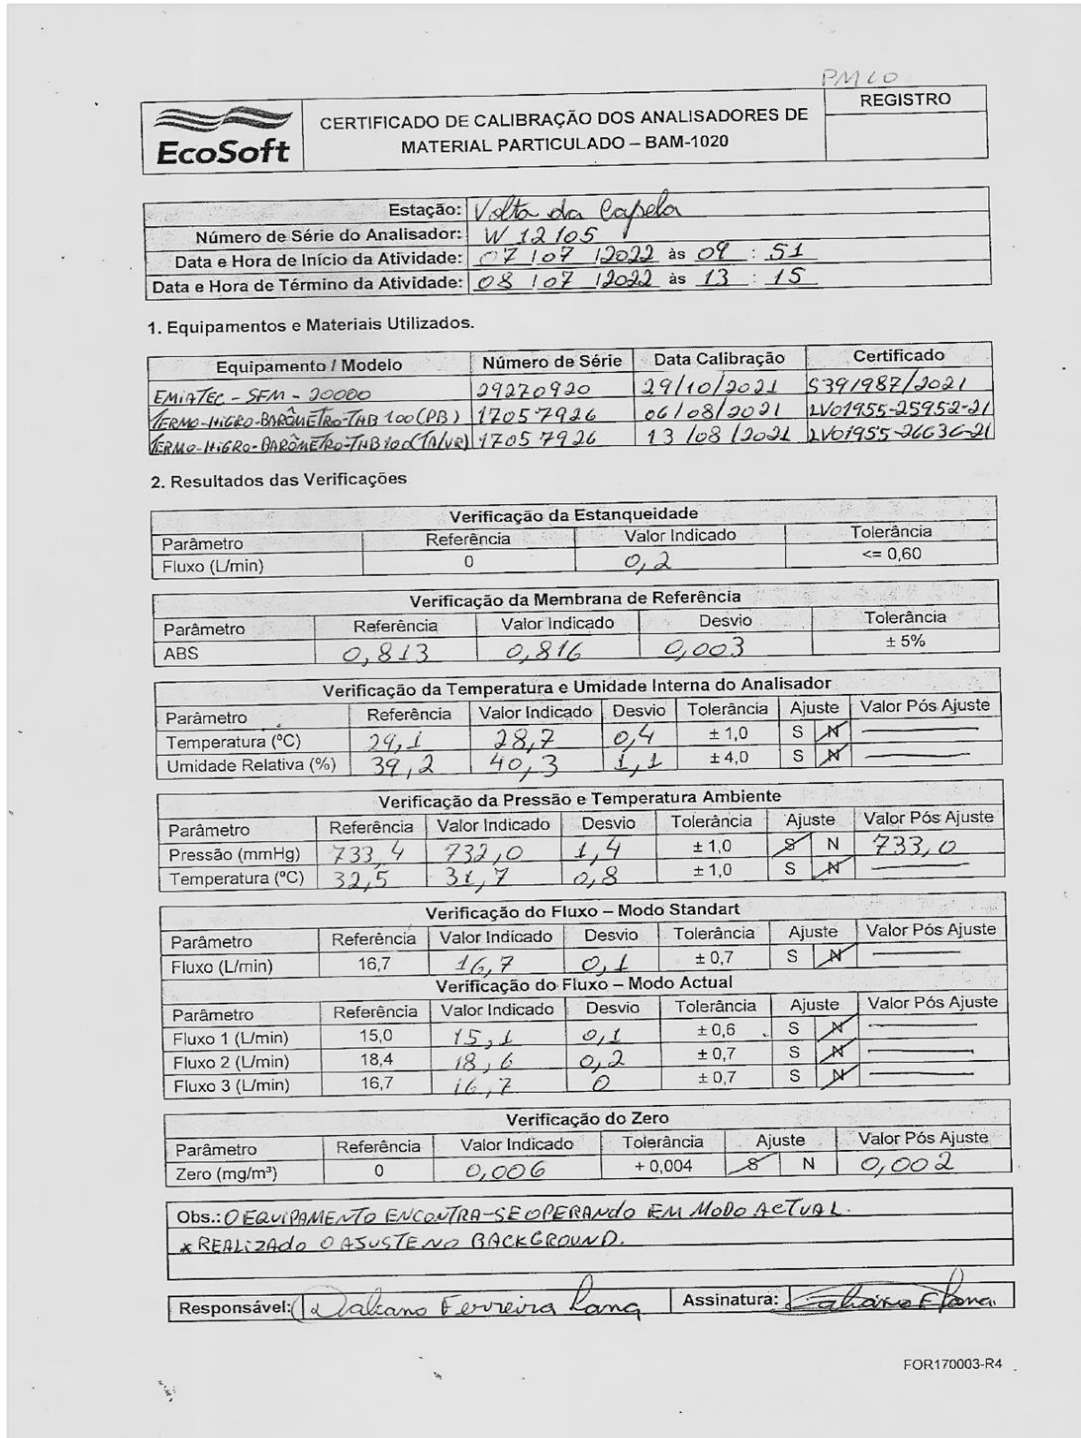 PM10
EcoSoft
CERTIFICADO DE CALIBRAÇÃO DOS ANALISADORES DE
MATERIAL PARTICULADO – BAM-1020
REGISTRO
Estação: Volta da Capela
Número de Série do Analisador: W 12105
Data e Hora de Início da Atividade: 07/07/2022 às 09:51
Data e Hora de Término da Atividade: 08/07/2022 às 13:15
1. Equipamentos e Materiais Utilizados.
Equipamento / Modelo Número de Série Data Calibração Certificado
EMIATEC - SFM - 20000 29270920 29/10/2021 S391987/2021
TERMO-HIGRO-BARÔMETRO-THB100(PB) 17057926 06/08/2021 LV01955-25952-21
TERMO-HIGRO-BARÔMETRO-THB100(TA/UR) 17057926 13/08/2021 LV01955-26636-21
2. Resultados das Verificações
Verificação da Estanqueidade
Parâmetro Referência Valor Indicado Tolerância
Fluxo (L/min) 0 0,2 <= 0,60
Verificação da Membrana de Referência
Parâmetro Referência Valor Indicado Desvio Tolerância
ABS 0,813 0,816 0,003 ± 5%
Verificação da Temperatura e Umidade Interna do Analisador
Parâmetro Referência Valor Indicado Desvio Tolerância Ajuste Valor Pós Ajuste
Temperatura (ºC) 29,1 28,7 0,4 ± 1,0 S N
Umidade Relativa (%) 39,2 40,3 1,1 ± 4,0 S N
Verificação da Pressão e Temperatura Ambiente
Parâmetro Referência Valor Indicado Desvio Tolerância Ajuste Valor Pós Ajuste
Pressão (mmHg) 733,4 732,0 1,4 ± 1,0 S N 733,0
Temperatura (ºC) 32,5 31,7 0,8 ± 1,0 S N
Verificação do Fluxo – Modo Standart
Parâmetro Referência Valor Indicado Desvio Tolerância Ajuste Valor Pós Ajuste
Fluxo (L/min) 16,7 16,7 0,1 ± 0,7 S N
Verificação do Fluxo – Modo Actual
Parâmetro Referência Valor Indicado Desvio Tolerância Ajuste Valor Pós Ajuste
Fluxo 1 (L/min) 15,0 15,1 0,1 ± 0,6 S N
Fluxo 2 (L/min) 18,4 18,6 0,2 ± 0,7 S N
Fluxo 3 (L/min) 16,7 16,7 0 ± 0,7 S N
Verificação do Zero
Parâmetro Referência Valor Indicado Tolerância Ajuste Valor Pós Ajuste
Zero (mg/m³) 0 0,006 + 0,004 S N 0,002
Obs.: O EQUIPAMENTO ENCONTRA-SE OPERANDO EM MODO ACTUAL.
* REALIZADO O AJUSTE NO BACKGROUND.
Responsável: Ferreira Assinatura:
FOR170003-R4